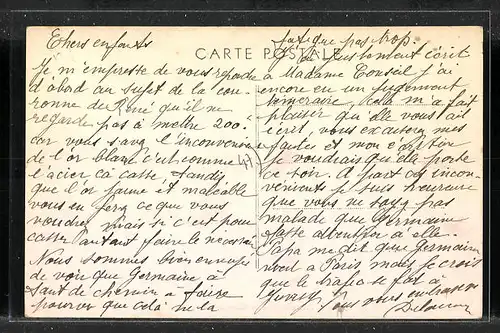 Chers enfants
CARTE POSTALE
Je m'empresse de vous repondre
d'abord au sujet de la cou-
ronne de René qu'il ne
regarde pas à mettre 200.
car vous savez l'inconvenient
de l'or blanc c'est comme
l'acier ça casse, tandis
que l'or jaune est maleable
vous en ferez ce que vous
voudrez mais si c'est pour
casser autant faire le necessaire
Nous sommes bien ennuyés
de voir que Germaine a
tant de chemin à faire
pourvu que cela ne la
47
fatigue pas trop.
J'ai justement écrit
à Madame Conseil j'ai
encore eu un jugement
temeraire, cela m'a fait
plaisir qu'elle vous ait
ecrit, vous excuserez mes
fautes et mon écriture
je voudrais qu'elle porte
ce ton. A part ces incon-
venients je suis heureuse
que vous ne soyez pas
malade que Germaine
fasse attention à elle.
Papa me dit que Germaine
à Paris, mais je crois
que le se fer a
vous embrassons